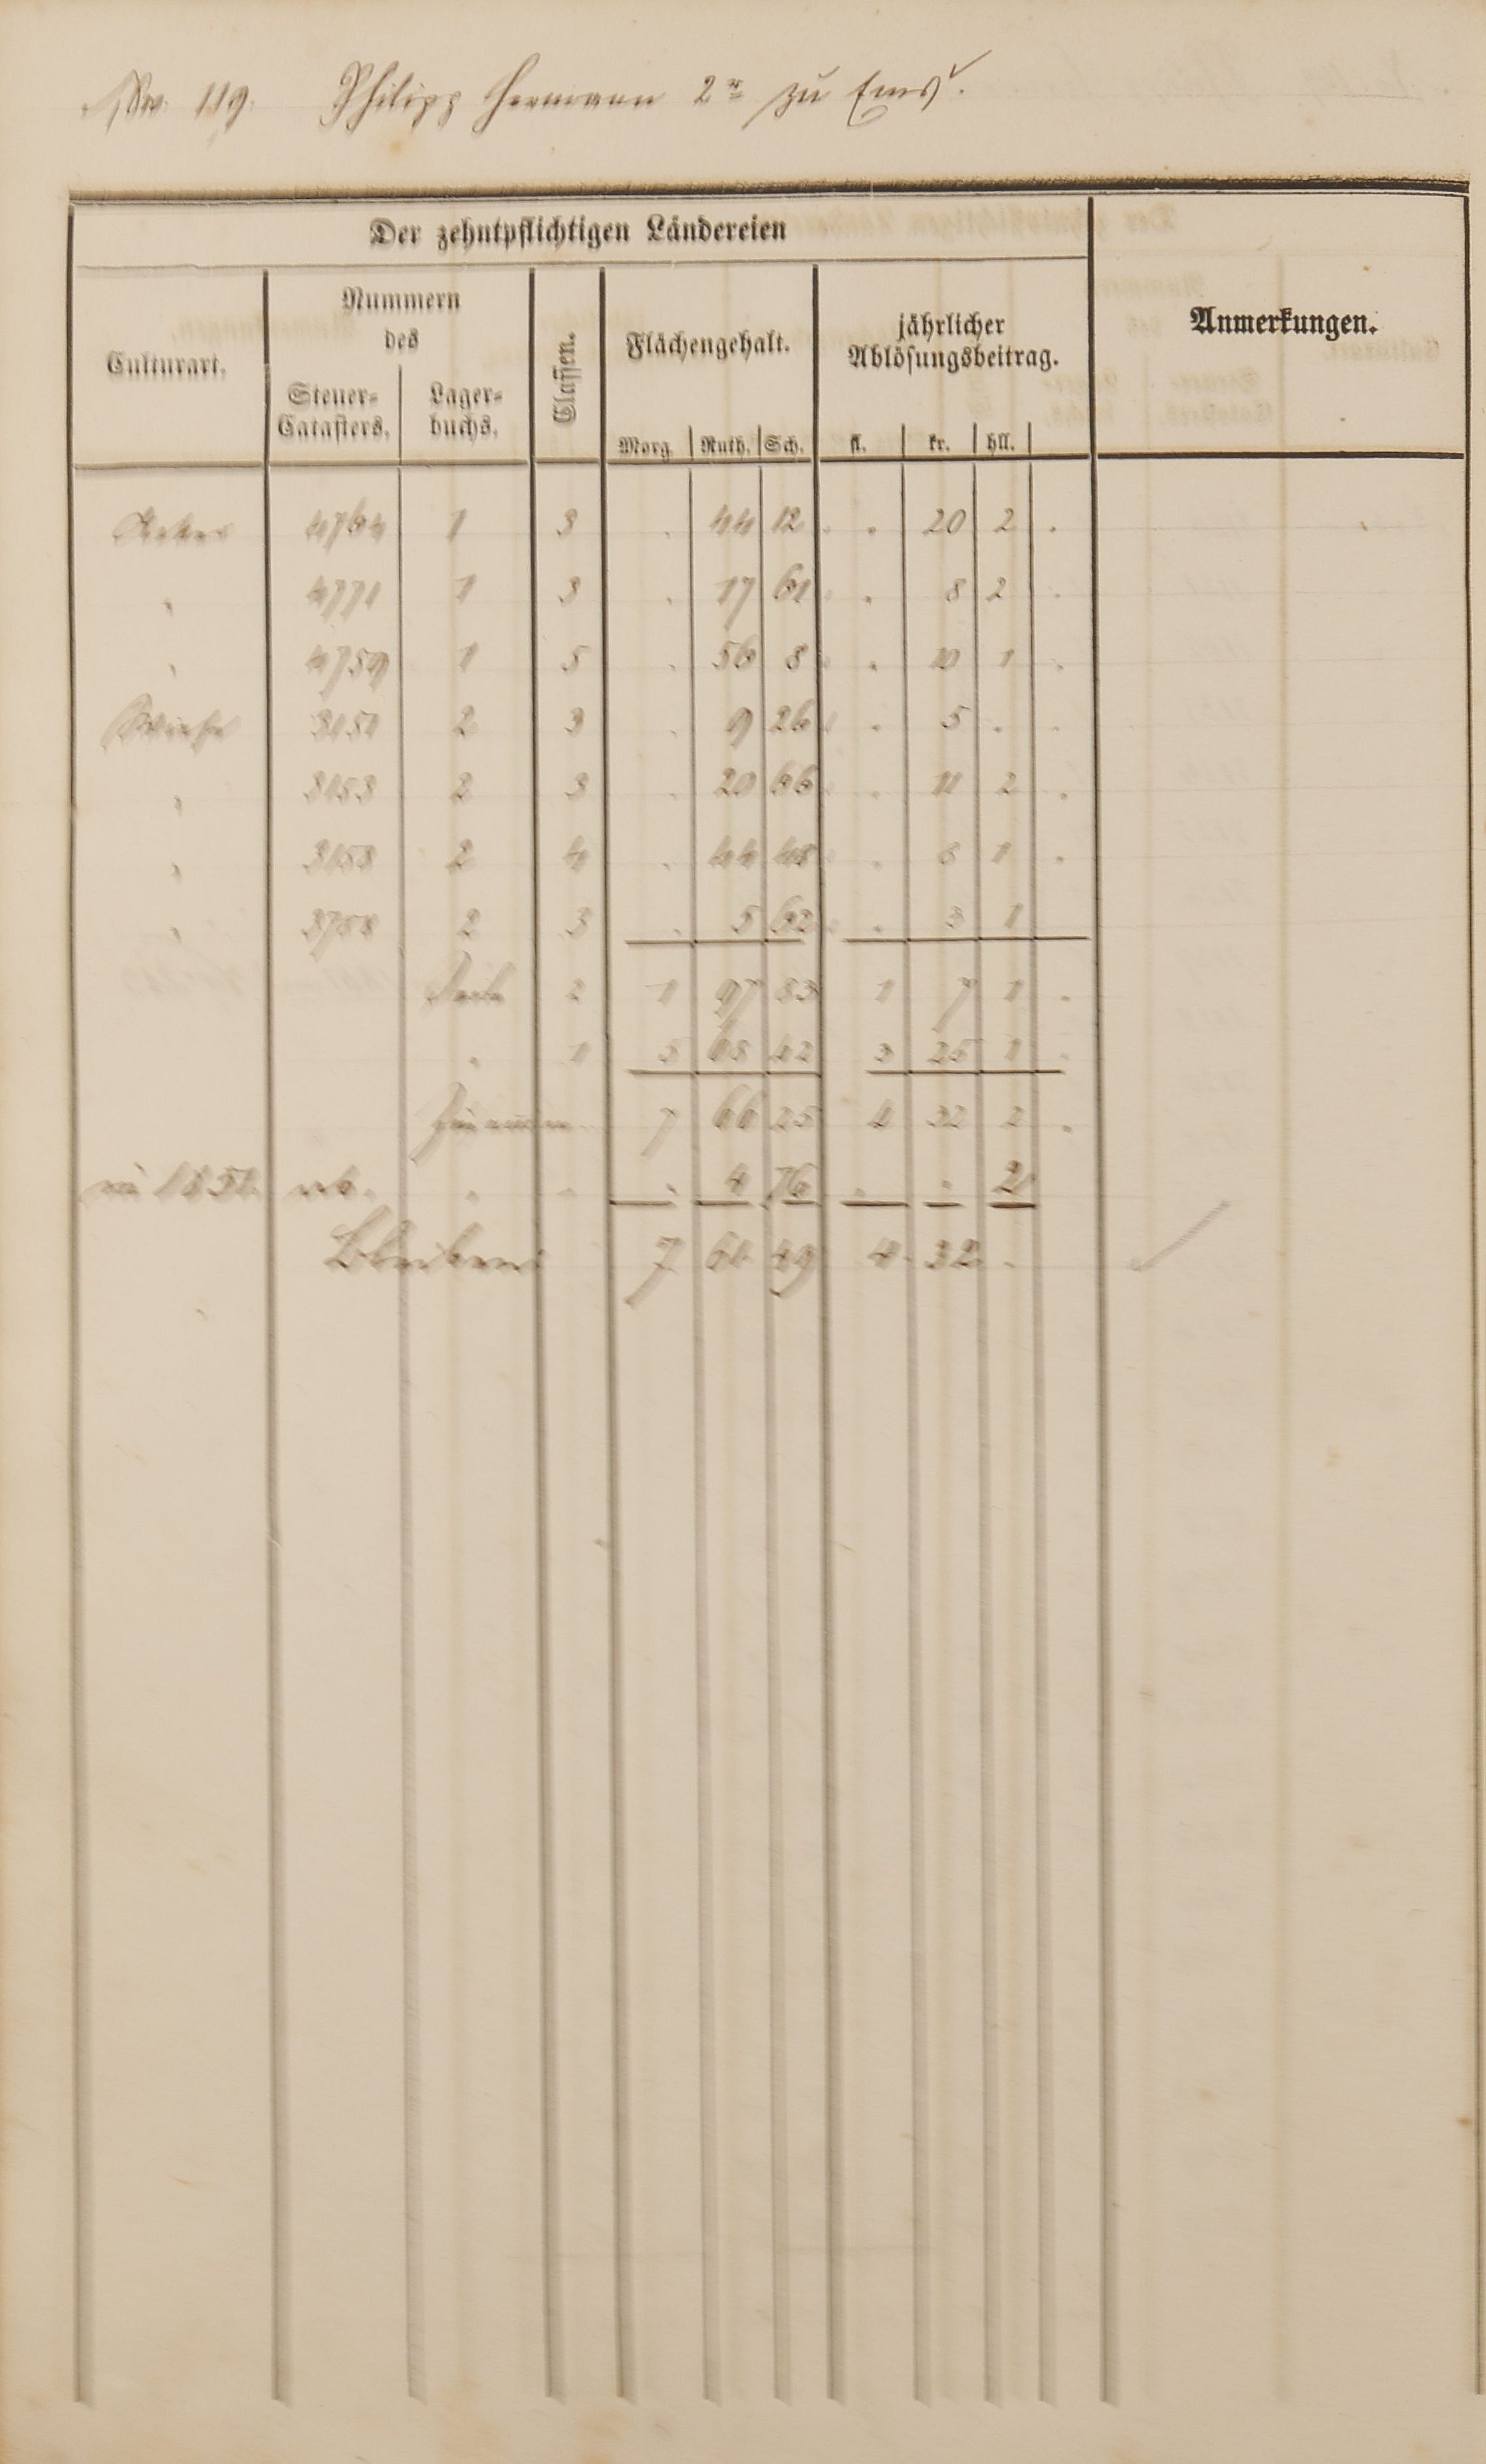 No. 119. Philipp Hermann 2r zu Ems.
Der zehntpflichtigen Ländereien
Anmerkungen.
Culturart.
Nummern des
Steuer-Catasters.
Lager-buchs.
Classen.
Flächengehalt.
jährlicher Ablösungsbeitrag.
Morg. Ruth. Sch. fl. kr. hll.
Acker 4764 1 3 . 44 12 . 20 2
" 4771 1 3 . 17 61 . 8 2
" 4759 1 5 . 56 8 . 10 1
Wiese 3151 2 3 . 9 26 . 5 .
" 3153 2 3 . 20 66 . 11 2
" 3158 2 4 . 44 48 . 8 1
" 3788 2 3 . 5 62 . 3 1
Seite 2 1 97 83 1 7 1
" 1 5 68 42 3 25 1
Zusammen 7 66 25 4 32 2
ab . . . 4 76 . . 2
Bleiben 7 61 49 4 32 .